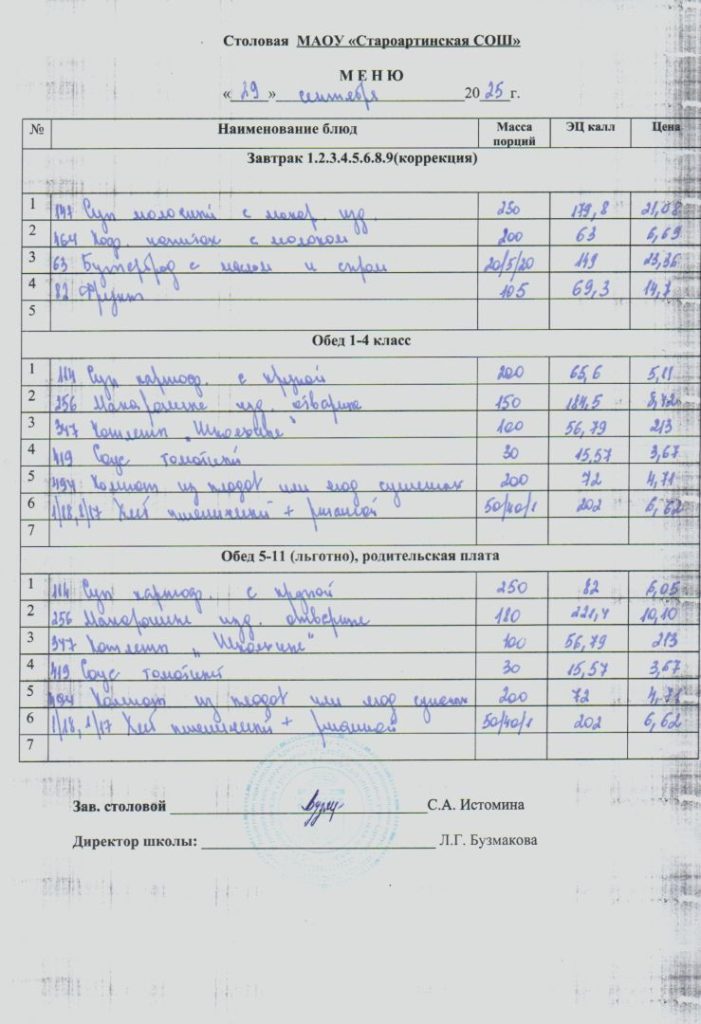 Столовая МАОУ «Староартинская СОШ»
М Е Н Ю
« 29 » сентября 2025 г.
№ Наименование блюд Масса порций ЭЦ калл Цена
Завтрак 1.2.3.4.5.6.8.9(коррекция)
1 147 Суп молочный с макар. изд. 250 179,8 21,08
2 464 Коф. напиток с молоком 200 63 6,69
3 63 Бутерброд с маслом и сыром 20/5/20 149 23,36
4 82 Фрукт 105 69,3 14,7
5
Обед 1-4 класс
1 114 Суп картоф. с крупой 200 65,6 5,11
2 256 Макаронные изд. отварные 150 184,5 8,42
3 347 Котлеты „Школьные" 100 56,79 213
4 419 Соус томатный 30 15,57 3,67
5 494 Компот из плодов или ягод сушеных 200 72 4,71
6 1/18, 1/17 Хлеб пшеничный + ржаной 50/40/1 202 6,62
7
Обед 5-11 (льготно), родительская плата
1 114 Суп картоф. с крупой 250 82 6,05
2 256 Макаронные изд. отварные 180 221,4 10,10
3 347 Котлеты „Школьные" 100 56,79 213
4 419 Соус томатный 30 15,57 3,67
5 494 Компот из плодов или ягод сушеных 200 72 4,71
6 1/18, 1/17 Хлеб пшеничный + ржаной 50/40/1 202 6,62
7
Зав. столовой С.А. Истомина
Директор школы: Л.Г. Бузмакова